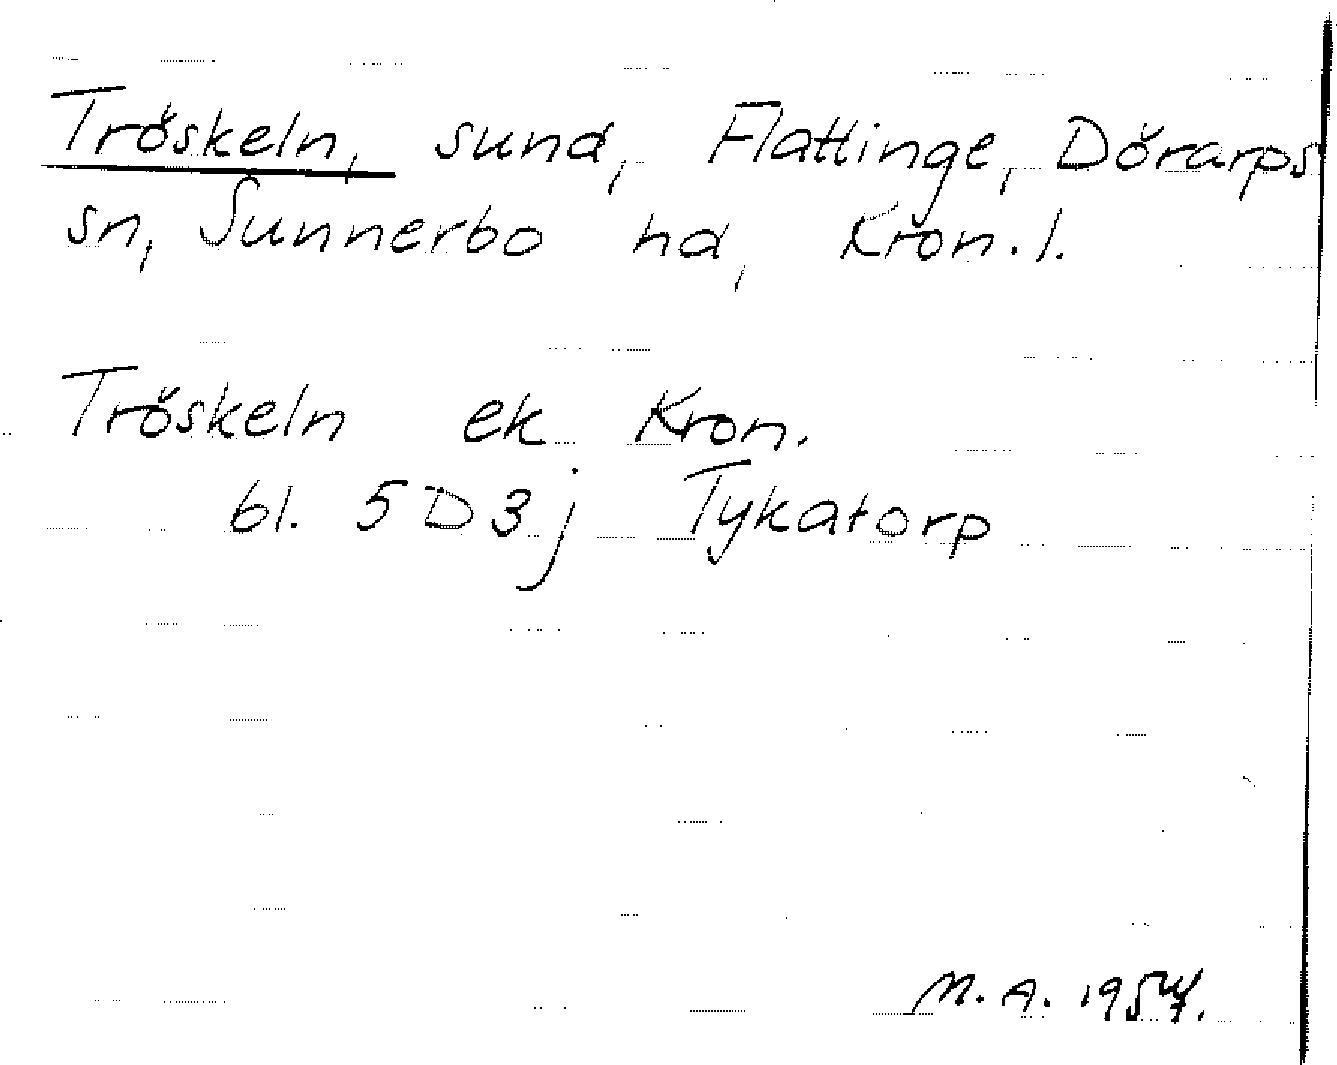 Tröskeln, sund, Flattinge, Dörarps
sn, Sunnerbo hd, Kron. l.
Tröskeln ek Kron.
bl. 5D3j Tykatorp
M. A. 1954.